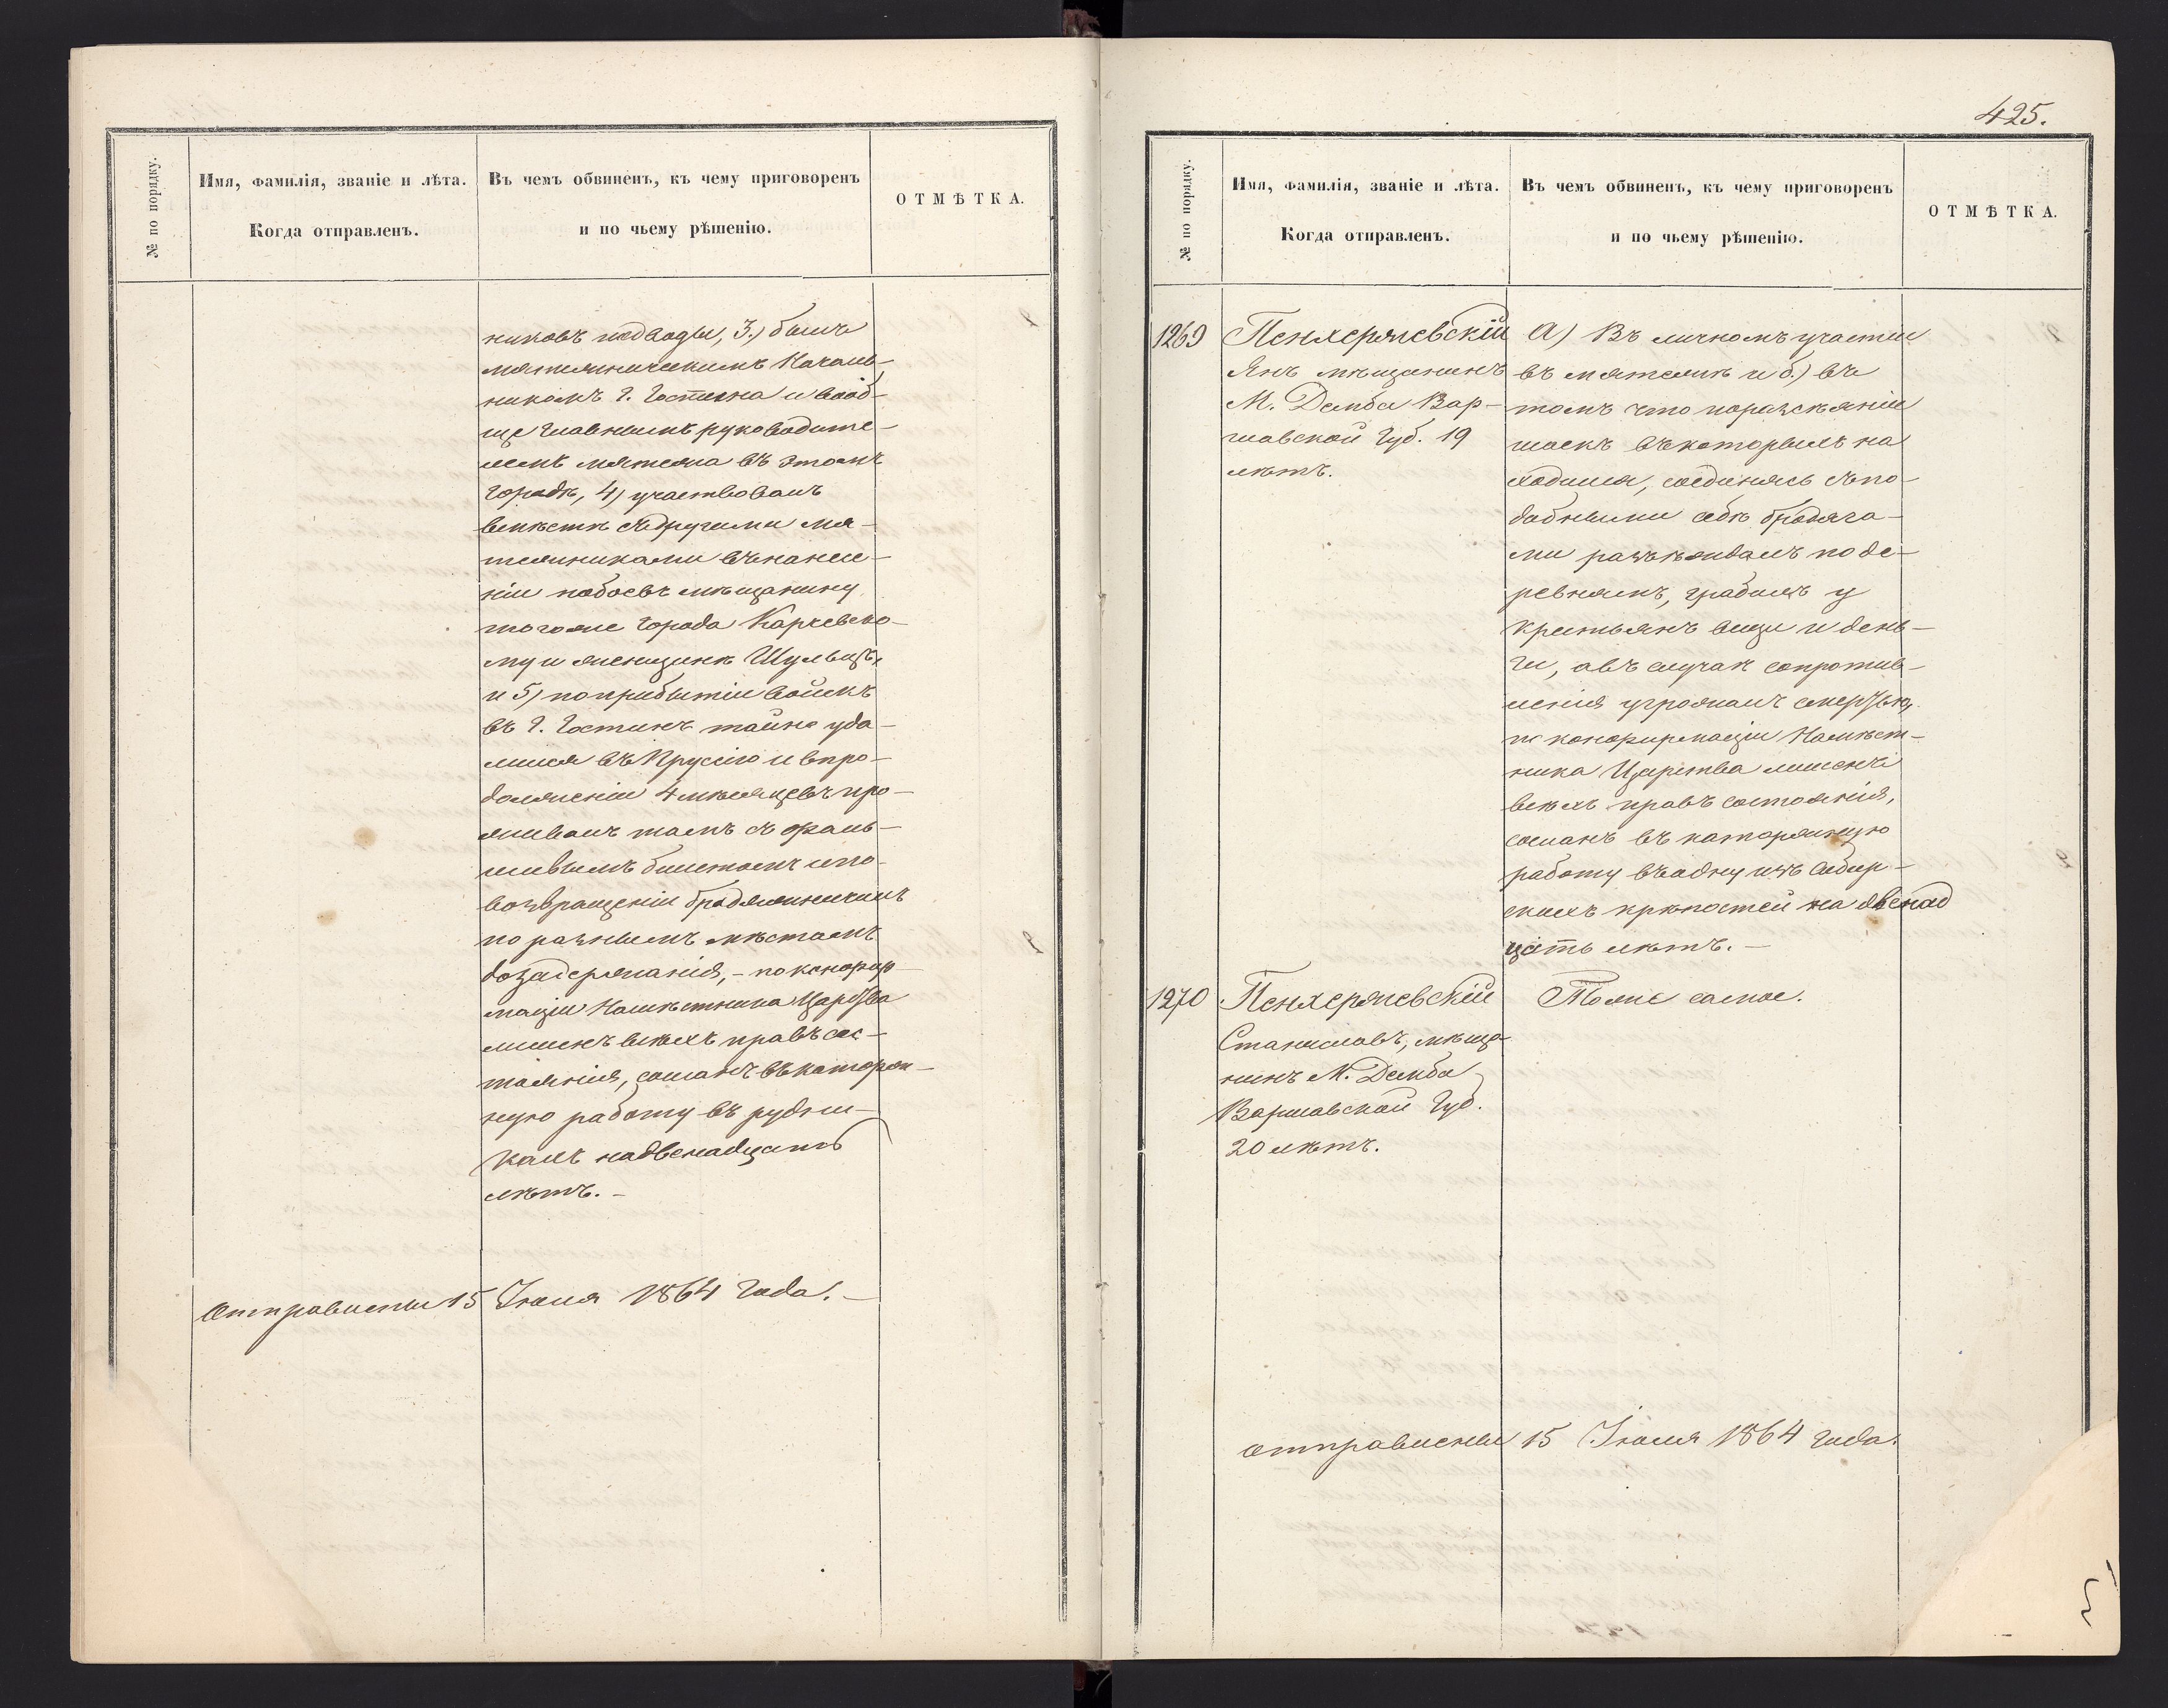 № по порядку.
Имя, фамилія, званіе и лѣта.
Когда отправленъ.
Въ чемъ обвиненъ, къ чему приговоренъ
и по чьему рѣшенію.
ОТМѢТКА.
никовъ подводы, 3.) былъ
мятежническимъ Началь-
никомъ г. Гостына и вооб-
ще главнымъ руководите-
лемъ мятежа въ этомъ
городѣ, 4) участвовалъ
вмѣстѣ съ другими мя-
тежниками въ нанесе-
ніи побоевъ мѣщанину
тогоже города Карчевско-
му и женщинѣ Шульцъ,
и 5) по прибытіи войскъ
въ г. Гостынъ тайно уда-
лился въ Пруссію и впро-
долженіи 4 мѣсяцевъ про-
живалъ тамъ съ фаль-
шивымъ билетомъ и по
возвращеніи бродяжничилъ
по разнымъ мѣстамъ
до задержанія, - по конфир-
маціи Намѣстника Царства
лишенъ всѣхъ правъ сос-
тоянія, сосланъ въ каторж-
ную работу въ рудни-
кахъ на двенадцать
лѣтъ. -
Отправлены 15 Іюля 1864 года. -
425.
№ по порядку.
Имя, фамилія, званіе и лѣта.
Когда отправленъ.
Въ чемъ обвиненъ, къ чему приговоренъ
и по чьему рѣшенію.
ОТМѢТКА.
1269
Пенхержевскій
Янъ мѣщанинъ
М. Демба Вар-
шавской Губ. 19
лѣтъ.
А) Въ личномъ участіи
въ мятежѣ и б.) въ
томъ что по разсѣяніи
шаекъ въ которыхъ на
ходился, соединясь съ по-
добными себѣ бродяга-
ми разъѣзжалъ по де-
ревнямъ, грабилъ у
крестьянъ вещи и день-
ги, а въ случаѣ сопротив-
ленія угрожалъ смертью,
по конфирмаціи Намѣст-
ника Царства лишенъ
всѣхъ правъ состоянія,
сосланъ въ каторжную
работу въ одну изъ Сибир-
скихъ крѣпостей на двенад
цать лѣтъ. -
1270
Пенхержевскій
Станиславъ, мѣща-
нинъ М. Демба
Варшавской Губ.
20 лѣтъ.
Тоже самое.
Отправлены 15 Іюля 1864 года.